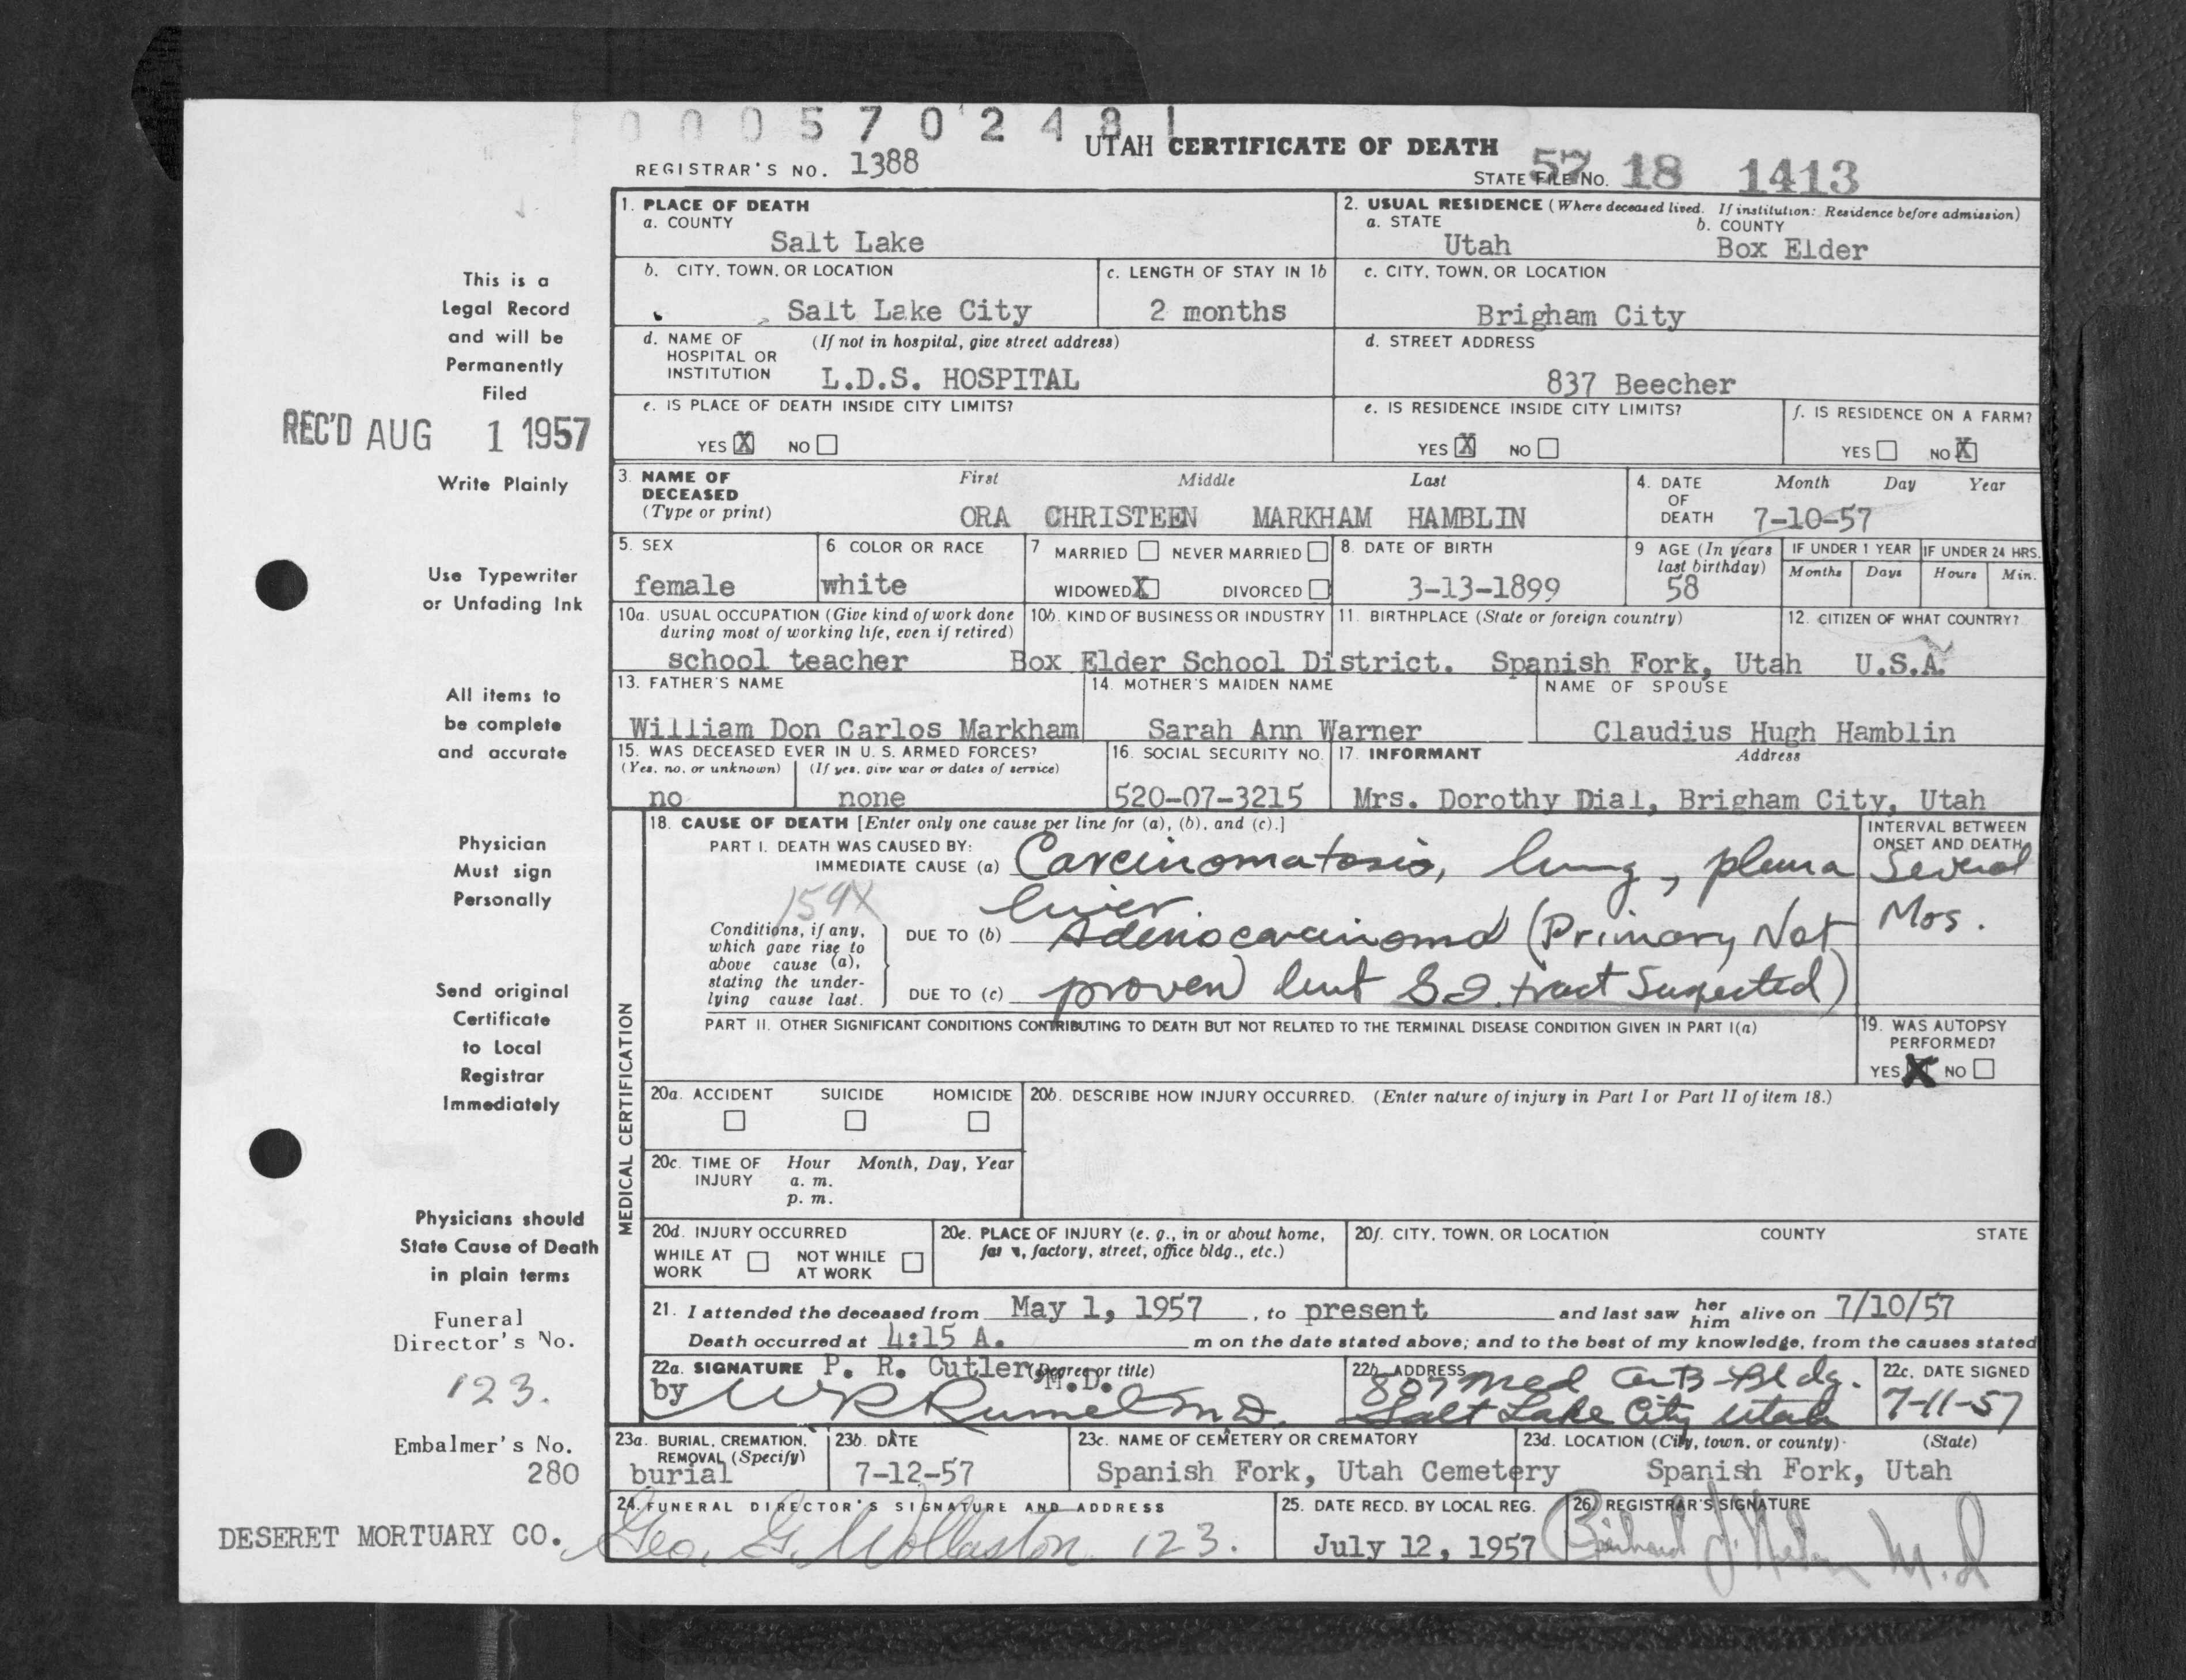 000570248
UTAH CERTIFICATE OF DEATH
REGISTRAR'S NO. 1388
STATE FILE NO. 57 18 1413
1. PLACE OF DEATH
a. COUNTY
Salt Lake
b. CITY, TOWN, OR LOCATION
Salt Lake City
c. LENGTH OF STAY IN 1b
2 months
d. NAME OF HOSPITAL OR INSTITUTION (If not in hospital, give street address)
L.D.S. HOSPITAL
e. IS PLACE OF DEATH INSIDE CITY LIMITS?
YES X NO
2. USUAL RESIDENCE (Where deceased lived. If institution: Residence before admission)
a. STATE
Utah
b. COUNTY
Box Elder
c. CITY, TOWN, OR LOCATION
Brigham City
d. STREET ADDRESS
837 Beecher
e. IS RESIDENCE INSIDE CITY LIMITS?
YES X NO
f. IS RESIDENCE ON A FARM?
YES NO X
3. NAME OF DECEASED (Type or print)
First Middle Last
ORA CHRISTEEN MARKHAM HAMBLIN
4. DATE OF DEATH Month Day Year
7-10-57
5. SEX
female
6 COLOR OR RACE
white
7 MARRIED NEVER MARRIED
WIDOWED X DIVORCED
8. DATE OF BIRTH
3-13-1899
9 AGE (In years last birthday)
58
IF UNDER 1 YEAR
Months Days
IF UNDER 24 HRS.
Hours Min.
10a. USUAL OCCUPATION (Give kind of work done during most of working life, even if retired)
school teacher
10b. KIND OF BUSINESS OR INDUSTRY
Box Elder School District.
11. BIRTHPLACE (State or foreign country)
Spanish Fork, Utah
12. CITIZEN OF WHAT COUNTRY?
U.S.A.
13. FATHER'S NAME
William Don Carlos Markham
14. MOTHER'S MAIDEN NAME
Sarah Ann Warner
NAME OF SPOUSE
Claudius Hugh Hamblin
15. WAS DECEASED EVER IN U. S. ARMED FORCES?
(Yes, no, or unknown) (If yes, give war or dates of service)
no none
16. SOCIAL SECURITY NO.
520-07-3215
17. INFORMANT Address
Mrs. Dorothy Dial, Brigham City, Utah
MEDICAL CERTIFICATION
18. CAUSE OF DEATH [Enter only one cause per line for (a), (b), and (c).]
PART I. DEATH WAS CAUSED BY:
IMMEDIATE CAUSE (a) Carcinomatosis, lung, pleura
liver.
159X
Conditions, if any, which gave rise to above cause (a), stating the underlying cause last.
DUE TO (b) Adenocarcinoma (Primary Not
DUE TO (c) proven but G I. tract Suspected)
INTERVAL BETWEEN ONSET AND DEATH
Several
Mos.
PART II. OTHER SIGNIFICANT CONDITIONS CONTRIBUTING TO DEATH BUT NOT RELATED TO THE TERMINAL DISEASE CONDITION GIVEN IN PART I(a)
19. WAS AUTOPSY PERFORMED?
YES X NO
20a. ACCIDENT SUICIDE HOMICIDE
20b. DESCRIBE HOW INJURY OCCURRED. (Enter nature of injury in Part I or Part II of item 18.)
20c. TIME OF INJURY Hour Month, Day, Year
a. m.
p. m.
20d. INJURY OCCURRED
WHILE AT WORK NOT WHILE AT WORK
20e. PLACE OF INJURY (e. g., in or about home, farm, factory, street, office bldg., etc.)
20f. CITY, TOWN, OR LOCATION COUNTY STATE
21. I attended the deceased from May 1, 1957, to present and last saw her him alive on 7/10/57
Death occurred at 4:15 A. m on the date stated above; and to the best of my knowledge, from the causes stated
22a. SIGNATURE P. R. Cutler, M.D. (Degree or title)
by W R Rumel M.D.
22b. ADDRESS
807 Med Bldg.
Salt Lake City Utah
22c. DATE SIGNED
7-11-57
23a. BURIAL, CREMATION, REMOVAL (Specify)
burial
23b. DATE
7-12-57
23c. NAME OF CEMETERY OR CREMATORY
Spanish Fork, Utah Cemetery
23d. LOCATION (City, town, or county) (State)
Spanish Fork, Utah
24. FUNERAL DIRECTOR'S SIGNATURE AND ADDRESS
Geo. G. Wollaston 123.
25. DATE RECD. BY LOCAL REG.
July 12, 1957
26. REGISTRAR'S SIGNATURE
M.D
This is a
Legal Record
and will be
Permanently
Filed
REC'D AUG 1 1957
Write Plainly
Use Typewriter
or Unfading Ink
All items to
be complete
and accurate
Physician
Must sign
Personally
Send original
Certificate
to Local
Registrar
Immediately
Physicians should
State Cause of Death
in plain terms
Funeral
Director's No.
123.
Embalmer's No.
280
DESERET MORTUARY CO.